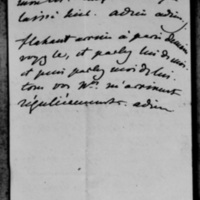 laissé hier. adieu adieu,
flahaut arrive à paris demain
voyez le, et parlez lui de moi.
et puis parlez moi de lui.
tous vos Nos. m'arrivent
régulièrement. adieu